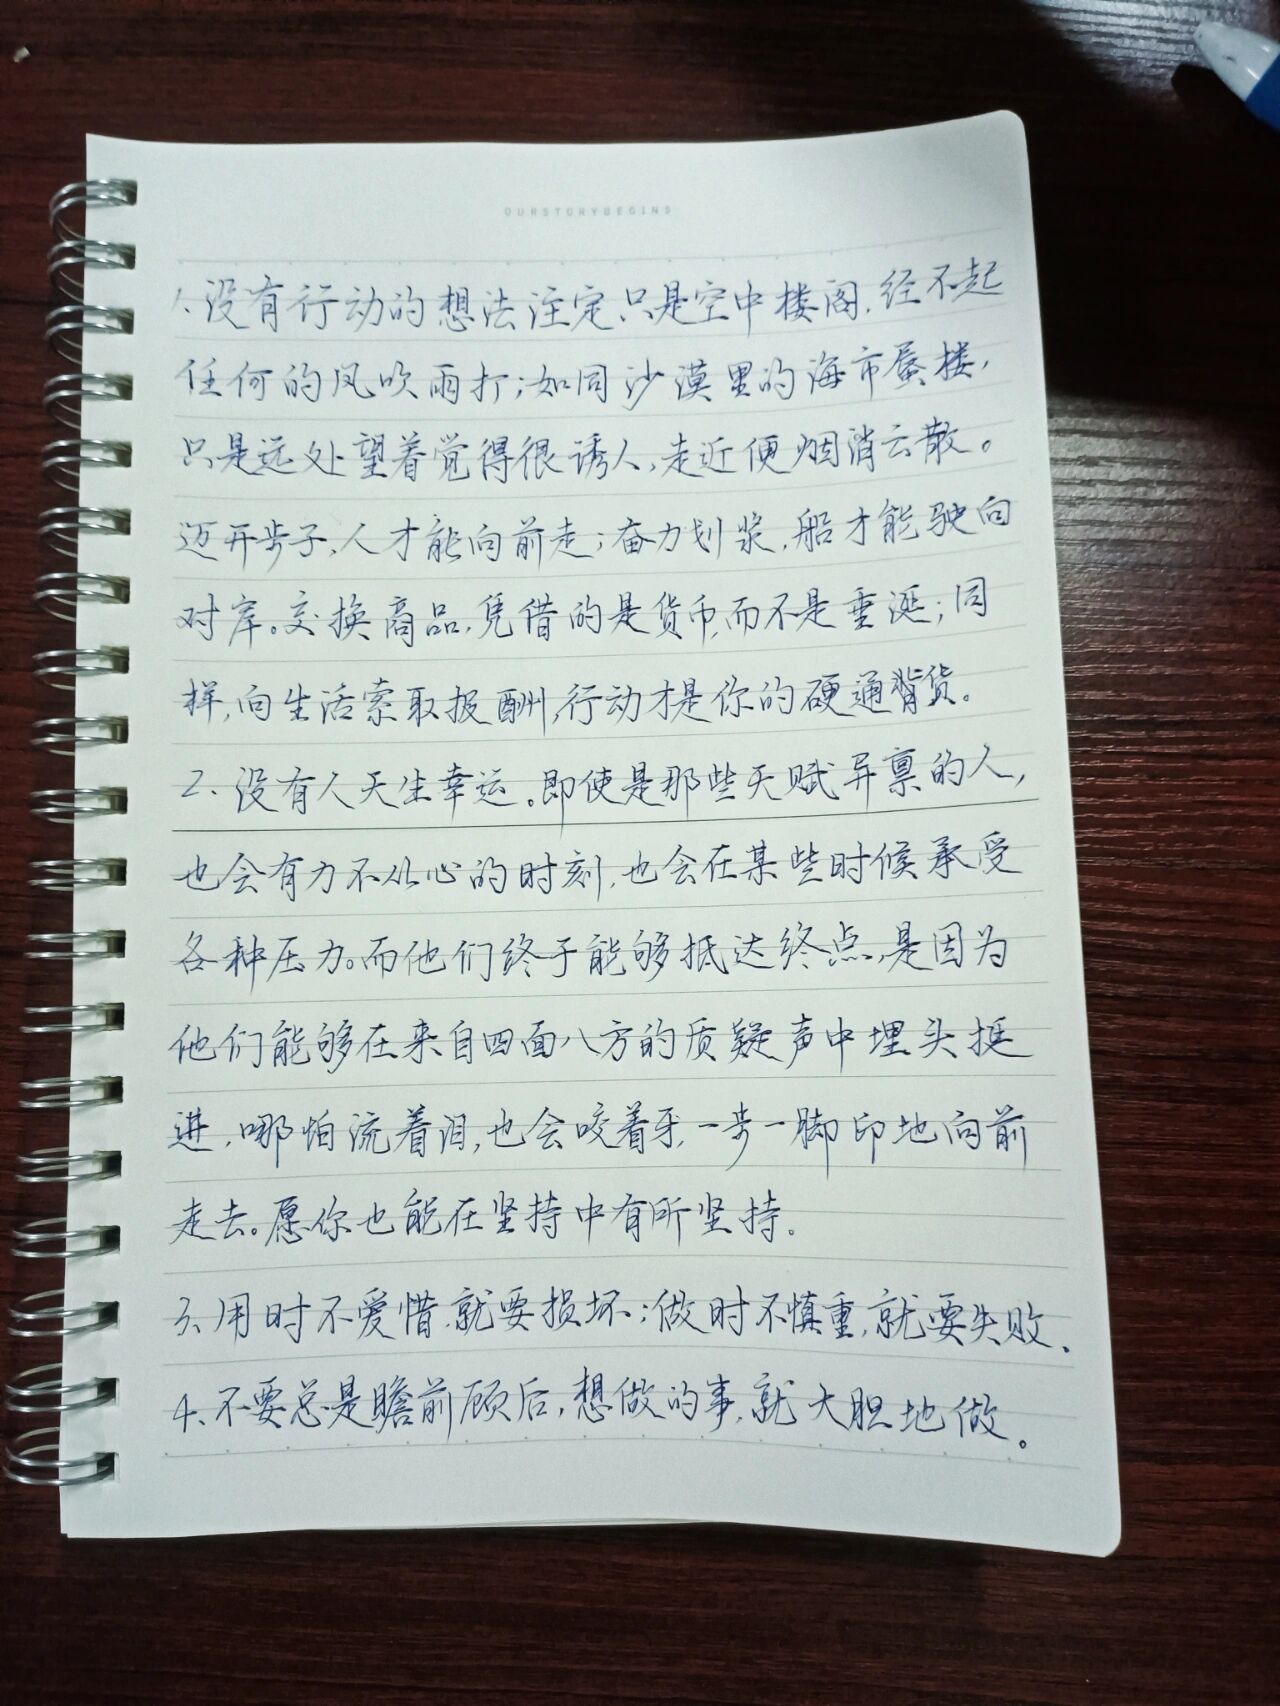 OURSTORYBEGINS
1、没有行动的想法注定只是空中楼阁,经不起
任何的风吹雨打;如同沙漠里的海市蜃楼,
只是远处望着觉得很诱人,走近便烟消云散。
迈开步子,人才能向前走;奋力划桨,船才能驶向
对岸。交换商品,凭借的是货币,而不是垂涎;同
样,向生活索取报酬,行动才是你的硬通货。
2、没有人天生幸运。即使是那些天赋异禀的人,
也会有力不从心的时刻,也会在某些时候承受
各种压力。而他们终于能够抵达终点,是因为
他们能够在来自四面八方的质疑声中埋头挺
进,哪怕流着泪,也会咬着牙,一步一脚印地向前
走去。愿你也能在坚持中有所坚持.
3、用时不爱惜,就要损坏;做时不慎重,就要失败.
4、不要总是瞻前顾后,想做的事,就大胆地做。